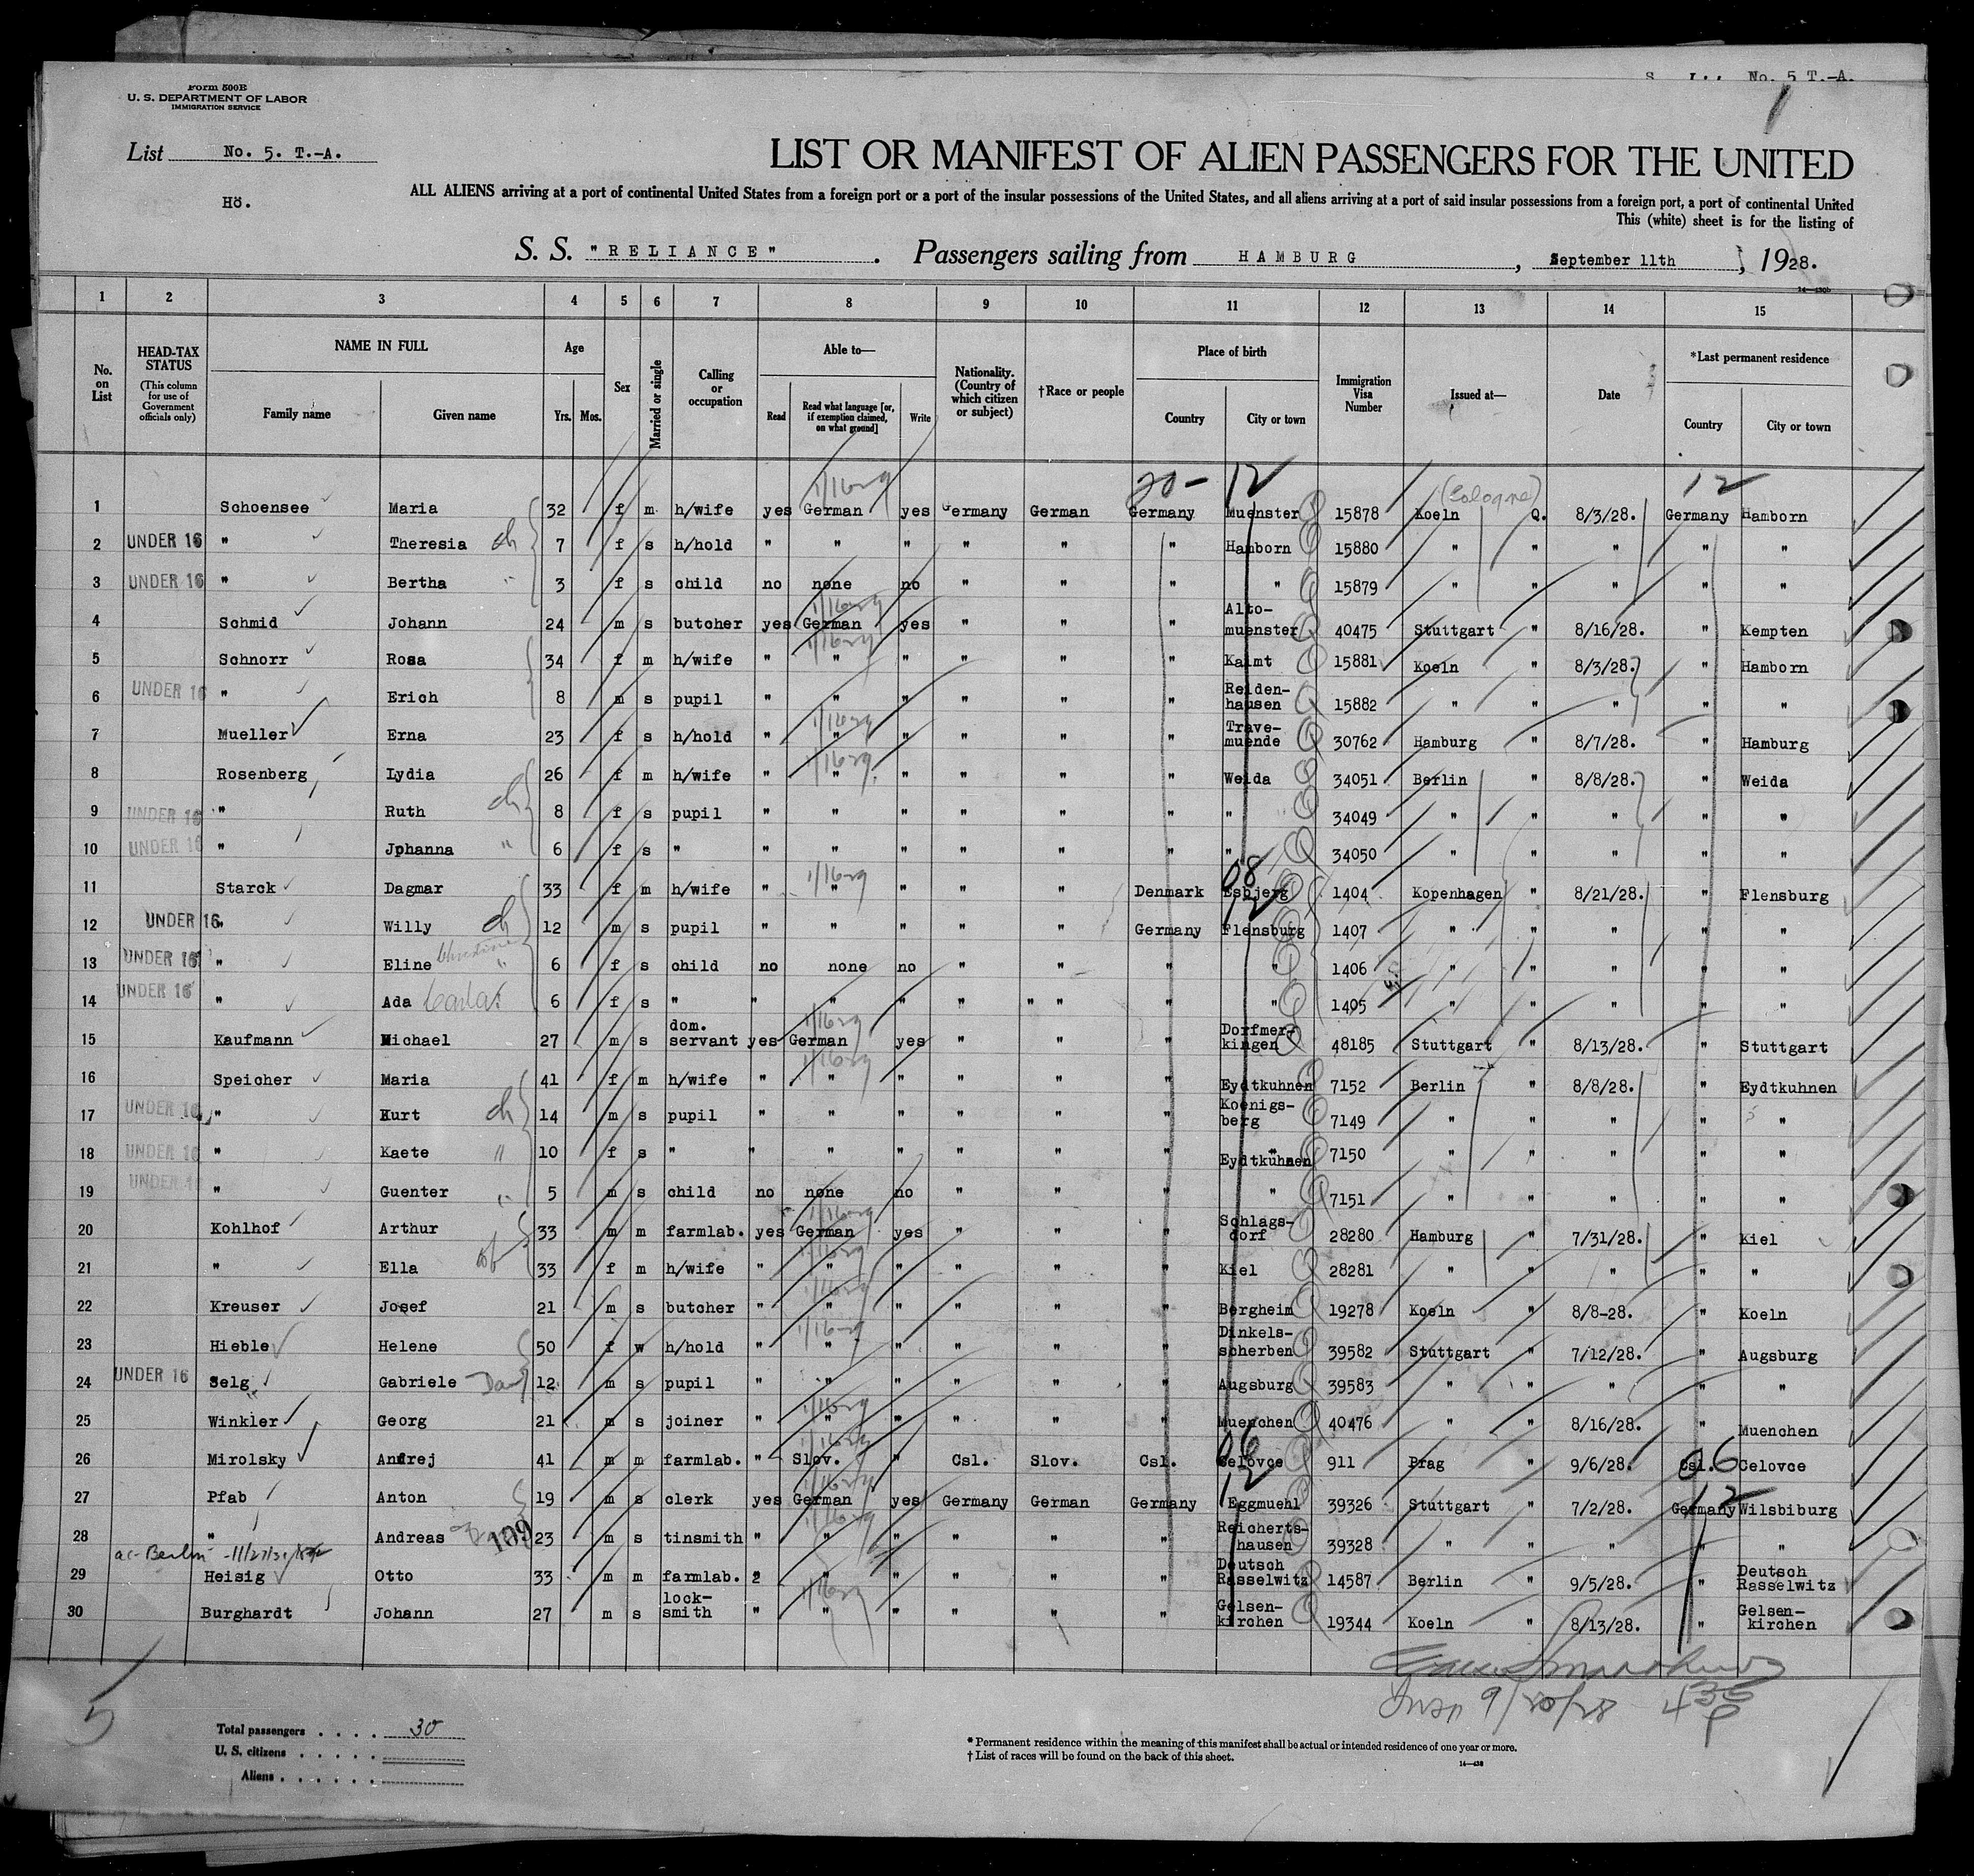 S. No. 5 T.-A.
1
Form 500B
U. S. DEPARTMENT OF LABOR
IMMIGRATION SERVICE
List No. 5. T.-A.
Hö.
LIST OR MANIFEST OF ALIEN PASSENGERS FOR THE UNITED
ALL ALIENS arriving at a port of continental United States from a foreign port or a port of the insular possessions of the United States, and all aliens arriving at a port of said insular possessions from a foreign port, a port of continental United
This (white) sheet is for the listing of
S. S. "RELIANCE". Passengers sailing from HAMBURG, September 11th, 1928.
1 2 3 4 5 6 7 8 9 10 11 12 13 14 15
No. on List
HEAD-TAX STATUS (This column for use of Government officials only)
NAME IN FULL Family name Given name
Age Yrs. Mos.
Sex
Married or single
Calling or occupation
Able to— Read Read what language [or, if exemption claimed, on what ground] Write
Nationality. (Country of which citizen or subject)
† Race or people
Place of birth Country City or town
Immigration Visa Number
Issued at—
Date
*Last permanent residence Country City or town
20- 12 (Cologne) 12
1 Schoensee Maria 32 f m h/wife yes German yes Germany German Germany Muenster 15878 Koeln Q. 8/3/28. Germany Hamborn
2 UNDER 16 " Theresia ch 7 f s h/hold " " " " " " Hamborn 15880 " " " " "
3 UNDER 16 " Bertha " 3 f s child no none no " " " " 15879 " " " " "
4 Schmid Johann 24 m s butcher yes German yes " " " Alto-muenster 40475 Stuttgart " 8/16/28. " Kempten
5 Schnorr Rosa 34 f m h/wife " " " " " " Kalmt 15881 Koeln " 8/3/28. " Hamborn
6 UNDER 16 " Erich 8 m s pupil " " " " " " Reiden-hausen 15882 " " " " "
7 Mueller Erna 23 f s h/hold " " " " " " Trave-muende 30762 Hamburg " 8/7/28. " Hamburg
8 Rosenberg Lydia 26 f m h/wife " " " " " " Weida 34051 Berlin " 8/8/28. " Weida
9 UNDER 16 " Ruth ch 8 f s pupil " " " " " " " 34049 " " " " "
10 UNDER 16 " Jphanna " 6 f s " " " " " " " " 34050 " " " " "
08
11 Starck Dagmar 33 f m h/wife " " " " " Denmark Esbjerg 1404 Kopenhagen " 8/21/28. " Flensburg
12
12 UNDER 16 " Willy ch 12 m s pupil " " " " " Germany Flensburg 1407 " " " " "
13 UNDER 16 " Eline " 6 f s child no none no " " " 1406 " " " " "
14 UNDER 16 " Ada Carla 6 f s " " " " " " " " 1405 " " " " "
15 Kaufmann Michael 27 m s dom. servant yes German yes " " " Dorfmer-kingen 48185 Stuttgart " 8/13/28. " Stuttgart
16 Speicher Maria 41 f m h/wife " " " " " " Eydtkuhnen 7152 Berlin " 8/8/28. " Eydtkuhnen
17 UNDER 16 " Kurt ch 14 m s pupil " " " " " " Koenigs-berg 7149 " " " " "
18 UNDER 16 " Kaete " 10 f s " " " " " " " Eydtkuhnen 7150 " " " " "
19 UNDER 16 " Guenter " 5 m s child no none no " " " " 7151 " " " " "
20 Kohlhof Arthur 33 m m farmlab. yes German yes " " " Schlags-dorf 28280 Hamburg " 7/31/28. " Kiel
21 " Ella 33 f m h/wife " " " " " " Kiel 28281 " " " " "
22 Kreuser Josef 21 m s butcher " " " " " " Bergheim 19278 Koeln " 8/8-28. " Koeln
23 Hieble Helene 50 f w h/hold " " " " " " Dinkels-scherben 39582 Stuttgart " 7/12/28. " Augsburg
24 UNDER 16 Selg Gabriele 12 m s pupil " " " " " " Augsburg 39583 " " " " "
25 Winkler Georg 21 m s joiner " " " " " " Muenchen 40476 " " 8/16/28. " Muenchen
06 06
26 Mirolsky Andrej 41 m m farmlab. " Slov. " Csl. Slov. Csl. Celovce 911 Prag " 9/6/28. Csl. Celovce
12 12
27 Pfab Anton 19 m s clerk yes German yes Germany German Germany Eggmuehl 39326 Stuttgart " 7/2/28. Germany Wilsbiburg
28 " Andreas 109 23 m s tinsmith " " " " " " Reicherts-hausen 39328 " " " " "
29 Heisig Otto 33 m m farmlab. 2 " " " " " Deutsch Rasselwitz 14587 Berlin " 9/5/28. " Deutsch Rasselwitz
30 Burghardt Johann 27 m s lock-smith " " " " " " Gelsen-kirchen 19344 Koeln " 8/13/28. " Gelsen-kirchen
9/20/28 4
5
Total passengers . . . . 30
U. S. citizens . . . . .
Aliens . . . . . .
* Permanent residence within the meaning of this manifest shall be actual or intended residence of one year or more.
† List of races will be found on the back of this sheet.